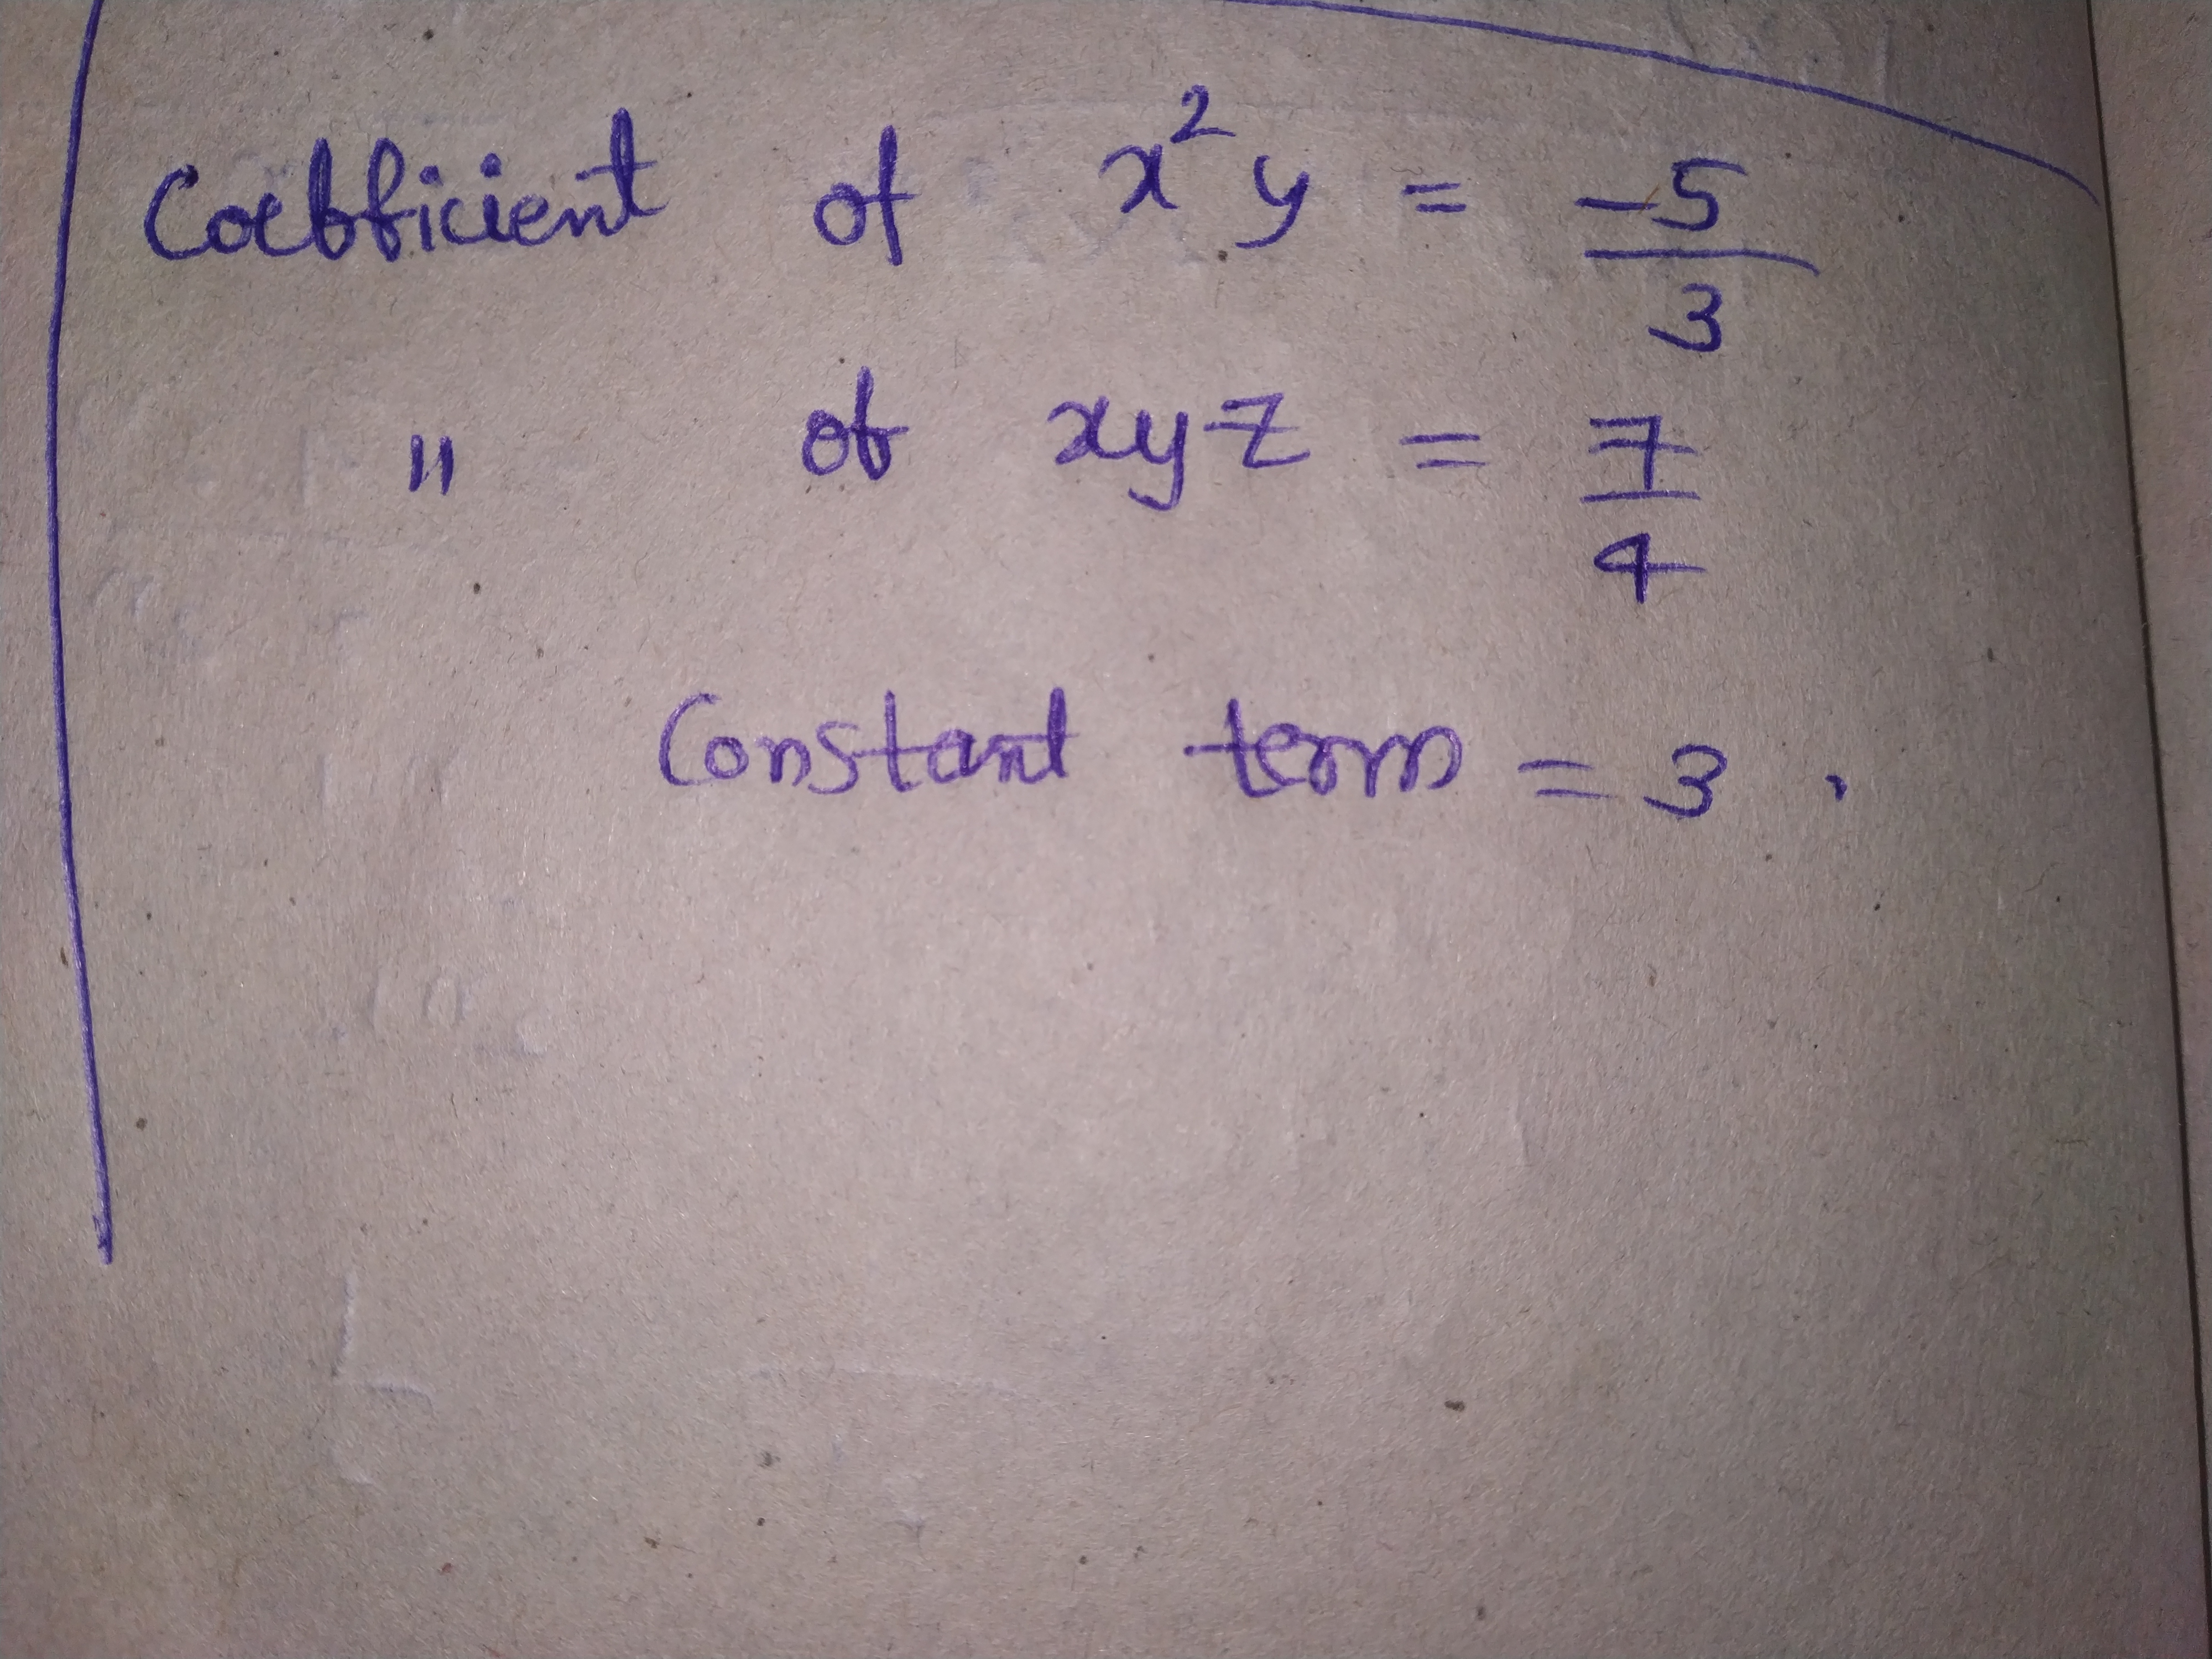 Coefficient of x²y = -5/3
" of xyz = 7/4
Constant term = 3.